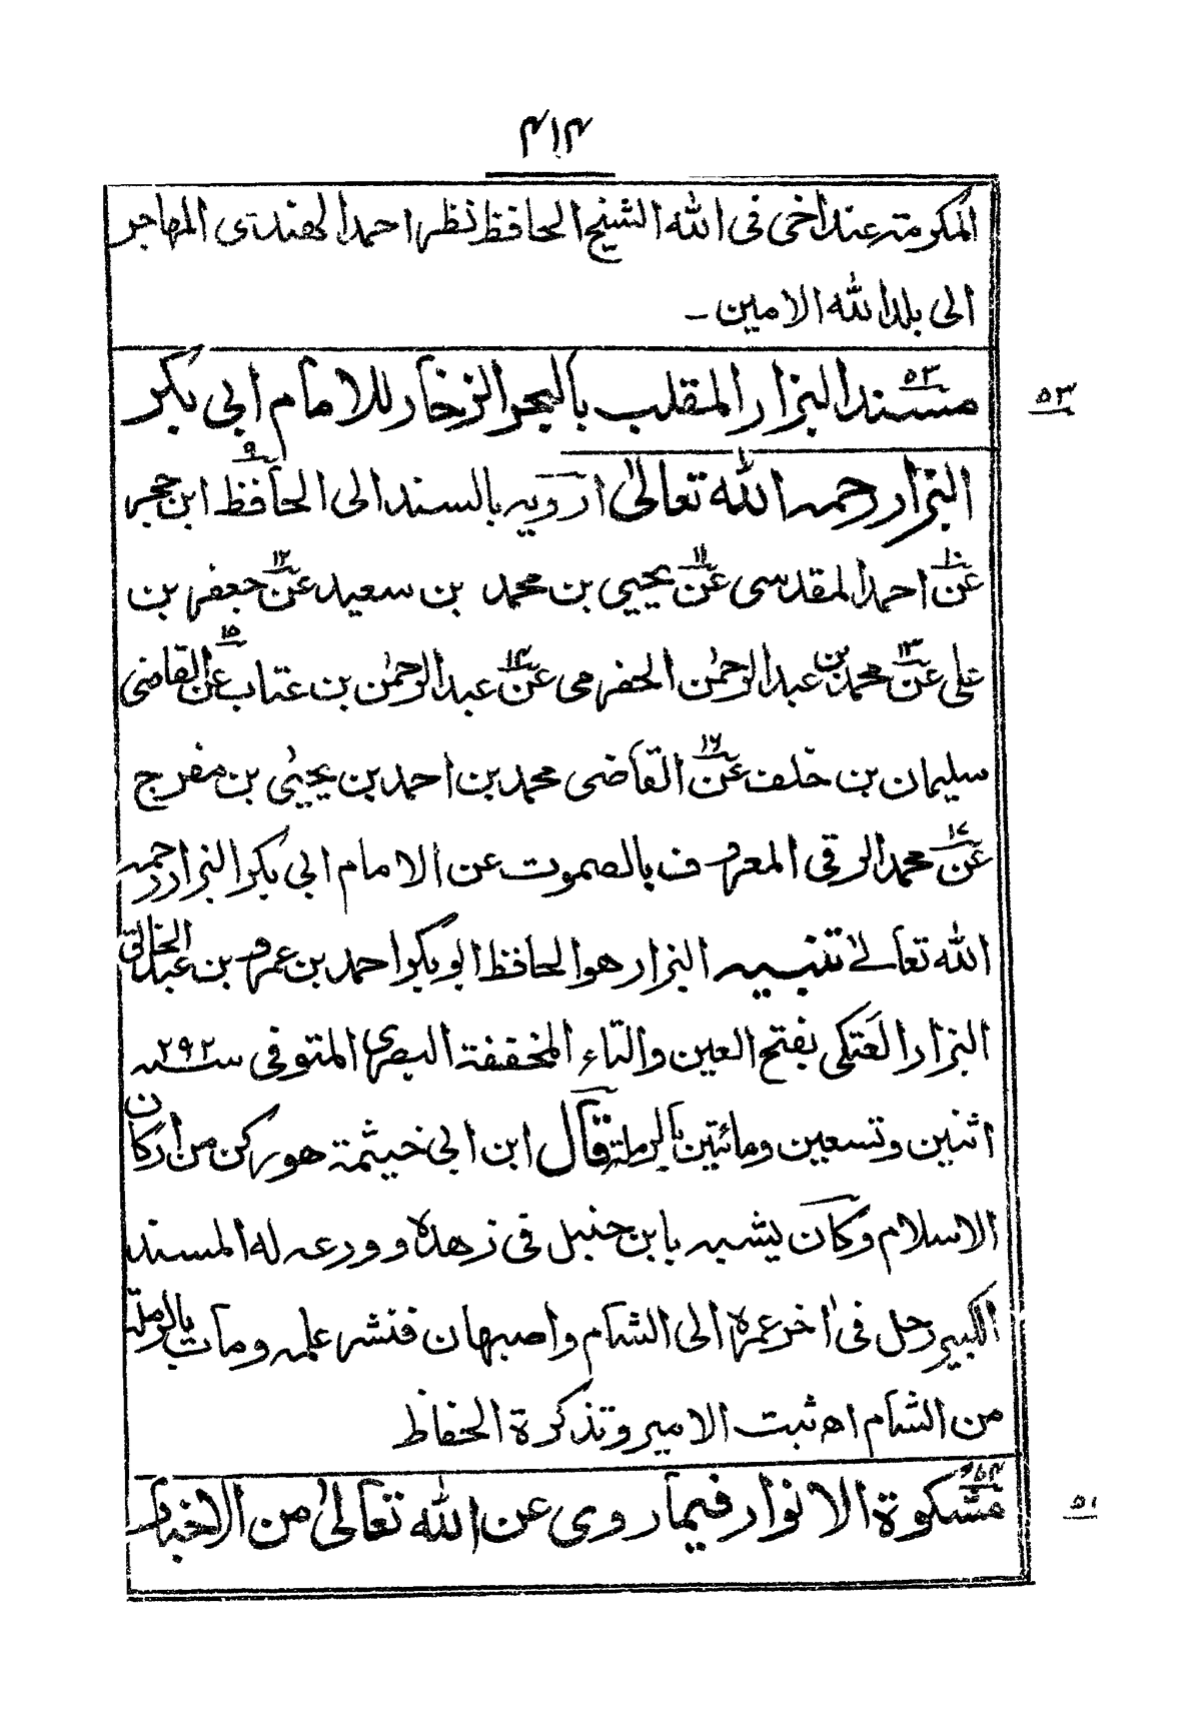 ۴۱۴
المكرمة عند اخى فى الله الشيخ الحافظ نظر احمد الهندى المهاجر
الى بلد الله الامين ـ
۵۳
مسند البزار المقلب بالبحر الزخار للامام ابى بكر
۵۳
البزار رحمه الله تعالىٰ ارويه بالسند الى الحافظ ابن حجر
۹
عن احمد المقدسى عن يحيى بن محمد بن سعيد عن جعفر بن
۱۰ ۱۱ ۱۲
على عن محمد بن عبد الرحمٰن الحضرمى عن عبد الرحمٰن بن عتاب عن القاضى
۱۳ ۱۴ ۱۵
سليمان بن خلف عن القاضى محمد بن احمد بن يحيىٰ بن مفرج
۱۶
عن محمد الرقى المعروف بالصموت عن الامام ابى بكر البزار رحمه
۱۷
الله تعالىٰ تنبيه البزار هو الحافظ ابو بكر احمد بن عمرو بن عبد الخالق
البزار العَتكى بفتح العين والتاء المخففة البصرى المتوفى سنه ۲۹۲
اثنين وتسعين ومائتين بالرملة قال ابن ابى خيثمة هو ركن من اركان
الاسلام وكان يشبه بابن حنبل فى زهده وورعه له المسند
الكبير رحل فى اٰخر عمره الى الشام واصبهان فنشر علمه ومات بالرملة
من الشام اه ثبت الامير وتذكرة الحفاظ
۵۴
مشكوة الانوار فيما روى عن الله تعالىٰ من الاخبار
۵۱